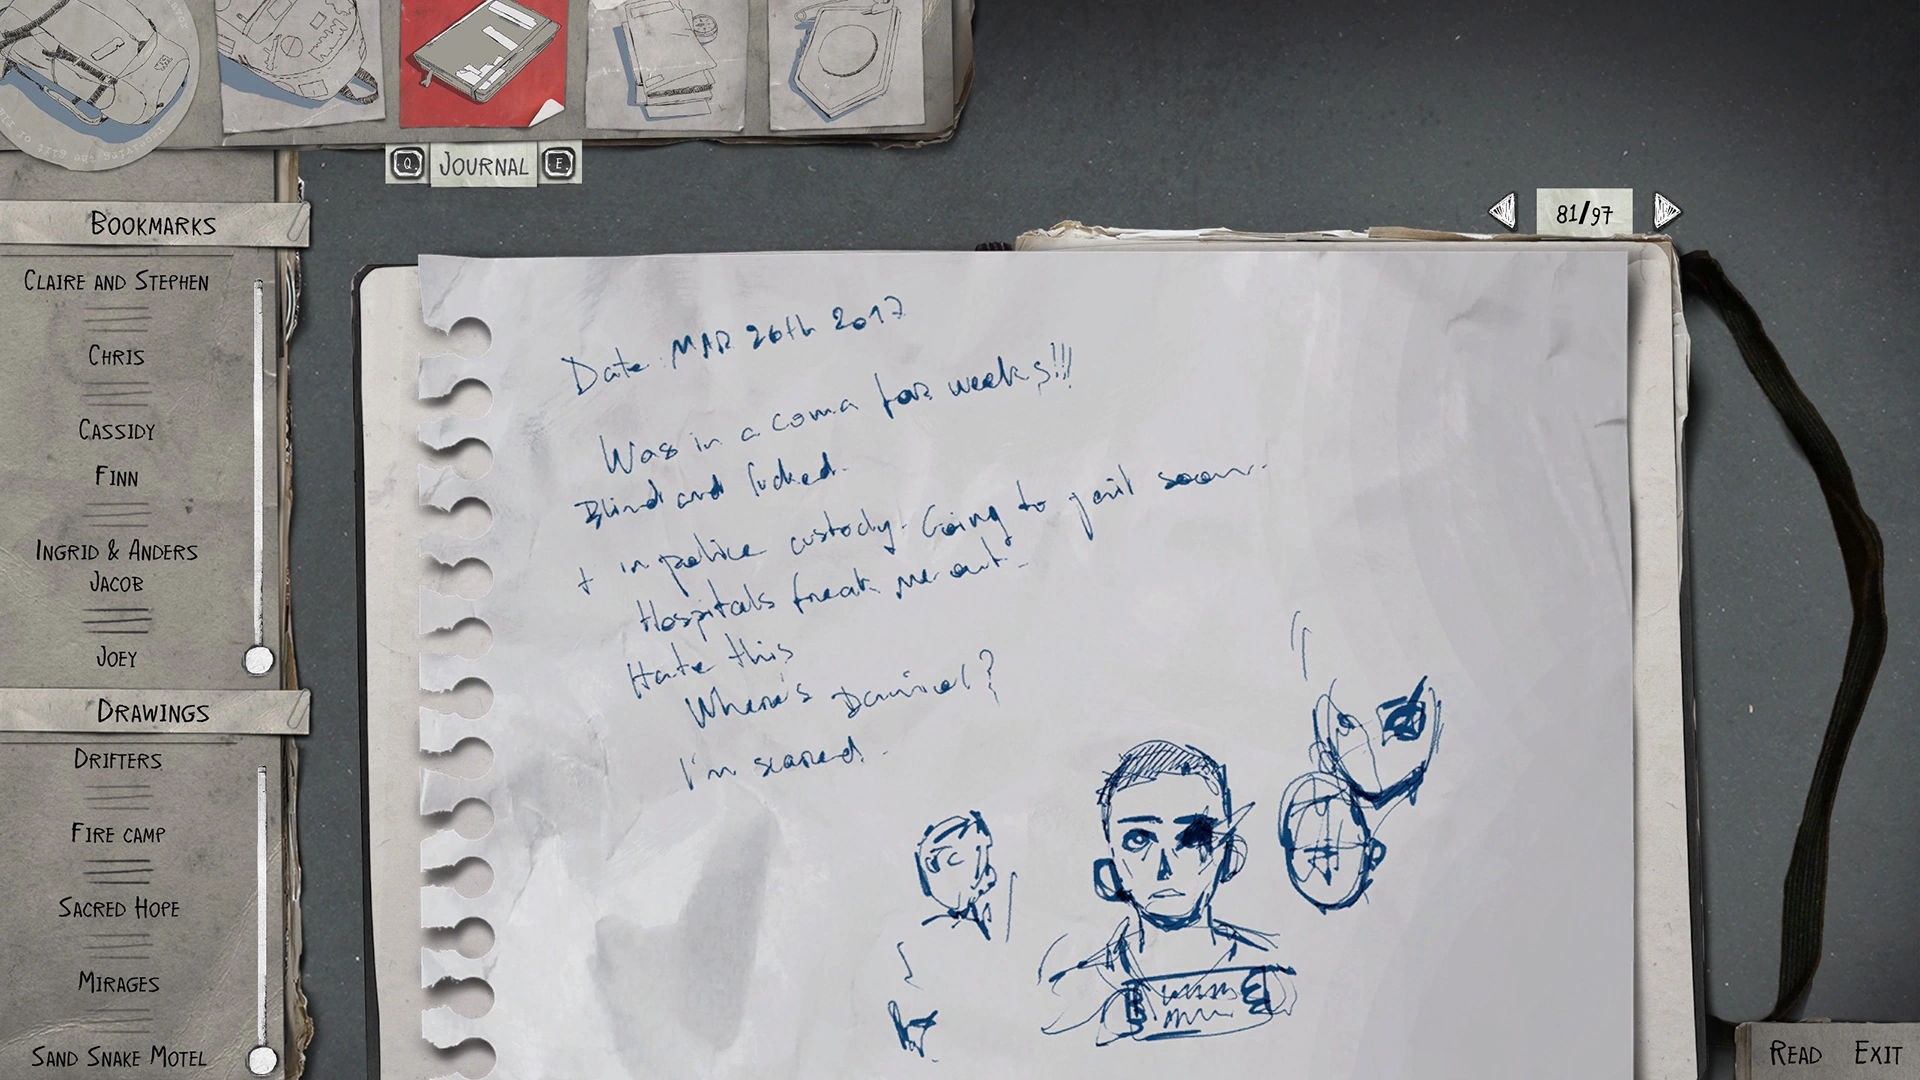 Q JOURNAL E
81/97
BOOKMARKS
CLAIRE AND STEPHEN
CHRIS
CASSIDY
FINN
INGRID & ANDERS
JACOB
JOEY
DRAWINGS
DRIFTERS
FIRE CAMP
SACRED HOPE
MIRAGES
SAND SNAKE MOTEL
Date: MAR 26th 2017
Was in a coma for weeks!!!
Blind and fucked.
+ in police custody. Going to jail soon.
Hospitals freak me out.
Hate this
Where's Daniel?
I'm scared.
READ EXIT